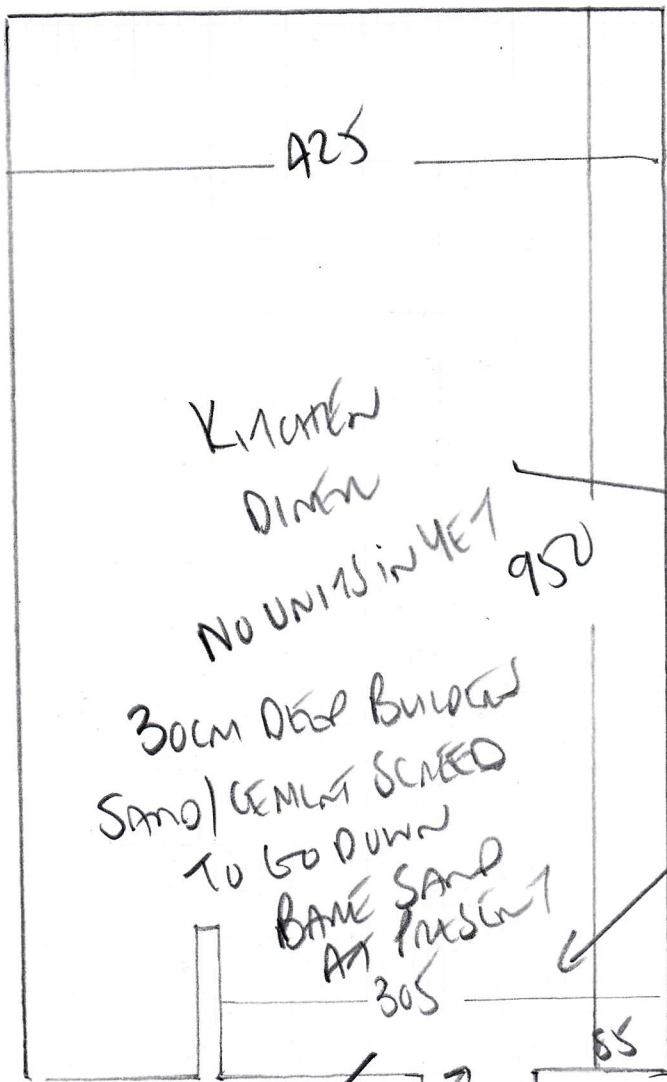 425
KITCHEN
DINER
NO UNITS IN YET
950
30CM DEEP BUILDERS
SAND/CEMENT SCREED
TO GO DOWN
BARE SAND
AT PRESENT
305
85